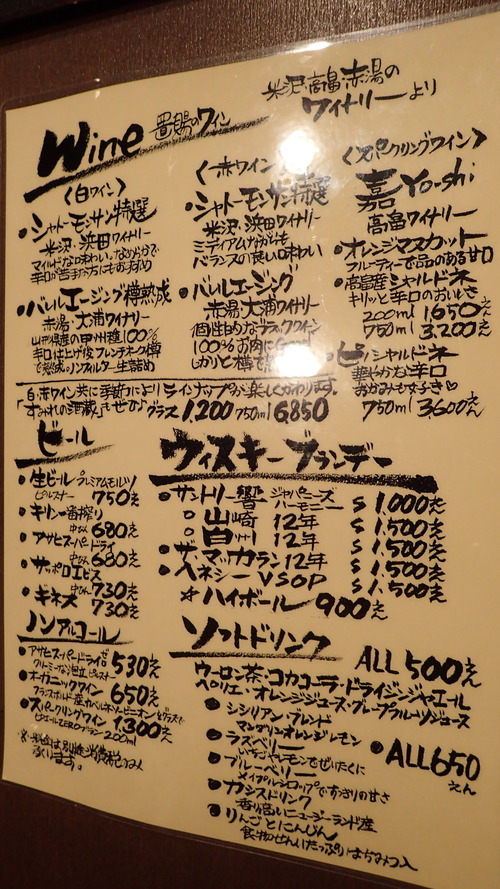 米沢・高畠・赤湯の
ワイナリーより
Wine 置賜のワイン
〈白ワイン〉
・シャトーモンサン特選
米沢・浜田ワイナリー
マイルドな味わい、なめらかで
辛口が苦手な方にもおすすめ
・バレルエージング樽熟成
赤湯・大浦ワイナリー
山形県産の甲州種100%
辛口仕上げ後フレンチオーク樽
で熟成のノンフィルター生詰め
〈赤ワイン〉
・シャトーモンサン特選
米沢・浜田ワイナリー
ミディアムながらも
バランスの良い味わい
・バレルエージング
赤湯・大浦ワイナリー
個性的なブラックワイン
100% お肉に
しっかりと樽
〈スパークリングワイン〉
嘉 Yo-shi
高畠ワイナリー
・オレンジマスカット
フルーティーで品のある甘口
・高畠産シャルドネ
キリッと辛口のおいしさ
200ml 1,650えん
750ml 3,200えん
・ピノシャルドネ
華やかな辛口
おかみも大好き♡
750ml 3,600えん
白・赤ワイン共に季節によりラインナップが楽しくかわります。
「すみれの酒蔵」もぜひ♪ グラス 1,200 750ml 6,850
ビール
・生ビール プレミアムモルツ
ピルスナー 750えん
・キリン一番搾り
中びん 680えん
・アサヒスーパードライ
中びん 680えん
・サッポロエビス
中びん 730えん
・ギネス 730えん
ウィスキーブランデー
・サントリー響 ジャパニーズハーモニー S 1,000えん
〃 山崎 12年 S 1,500えん
〃 白州 12年 S 1,500えん
・ザ・マッカラン12年 S 1,500えん
・ヘネシーVSOP S 1,500えん
☆ハイボール 900えん
ノンアルコール
・アサヒスーパードライゼロ
クリーミーな泡立ち 530えん
・オーガニックワイン 650えん
フランスボルドー産カベルネソービニオン
・スパークリングワイン 1,300えん
200ml
承ります。
ソフトドリンク ALL 500えん
ウーロン茶・コカコーラ・ドライジンジャエール
ペリエ・オレンジジュース・グレープフルーツジュース
・シシリアン・ブレンド
マンダリンオレンジレモン
・ラズベリー
いちごやレモンでぜいたくに
・ブルーベリー
メイプルシロップですっきりの甘さ
・カシスドリンク
香り高いニュージーランド産
・りんごとにんじん
食物せんいたっぷり はちみつ入
・ALL 650えん